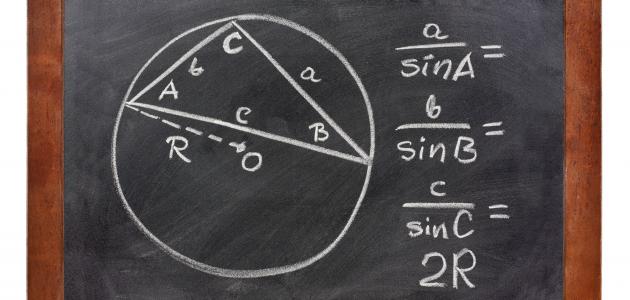 C
b
a
A
c
B
R
O
a/sinA =
b/sinB =
c/sinC =
2R